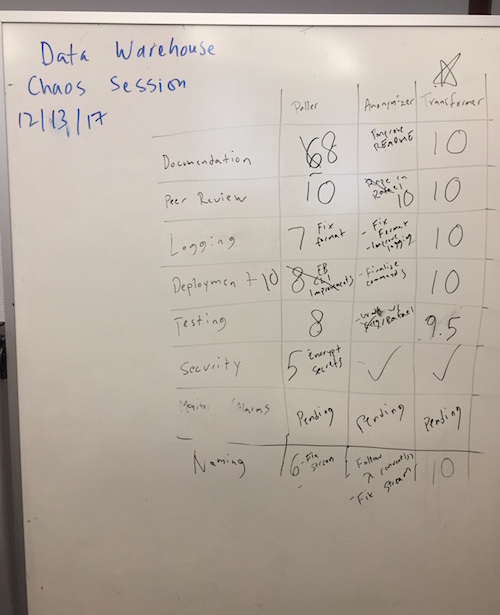 Data Warehouse
Chaos Session
12/13/17
Poller Anonymizer Transformer
Documendation 8 Improve README 10
Peer Review 10 Rope in Rafael 10 10
Logging 7 Fix format - Fix Format - Improve logging 10
Deployment 10 8 EB CLI Improvements - Finalize commands 10
Testing 8 9.5
Security 5 Encrypt secrets ✓ ✓
Alarms Pending Pending Pending
Naming 6 - Fix stream Follow λ - Fix stream 10